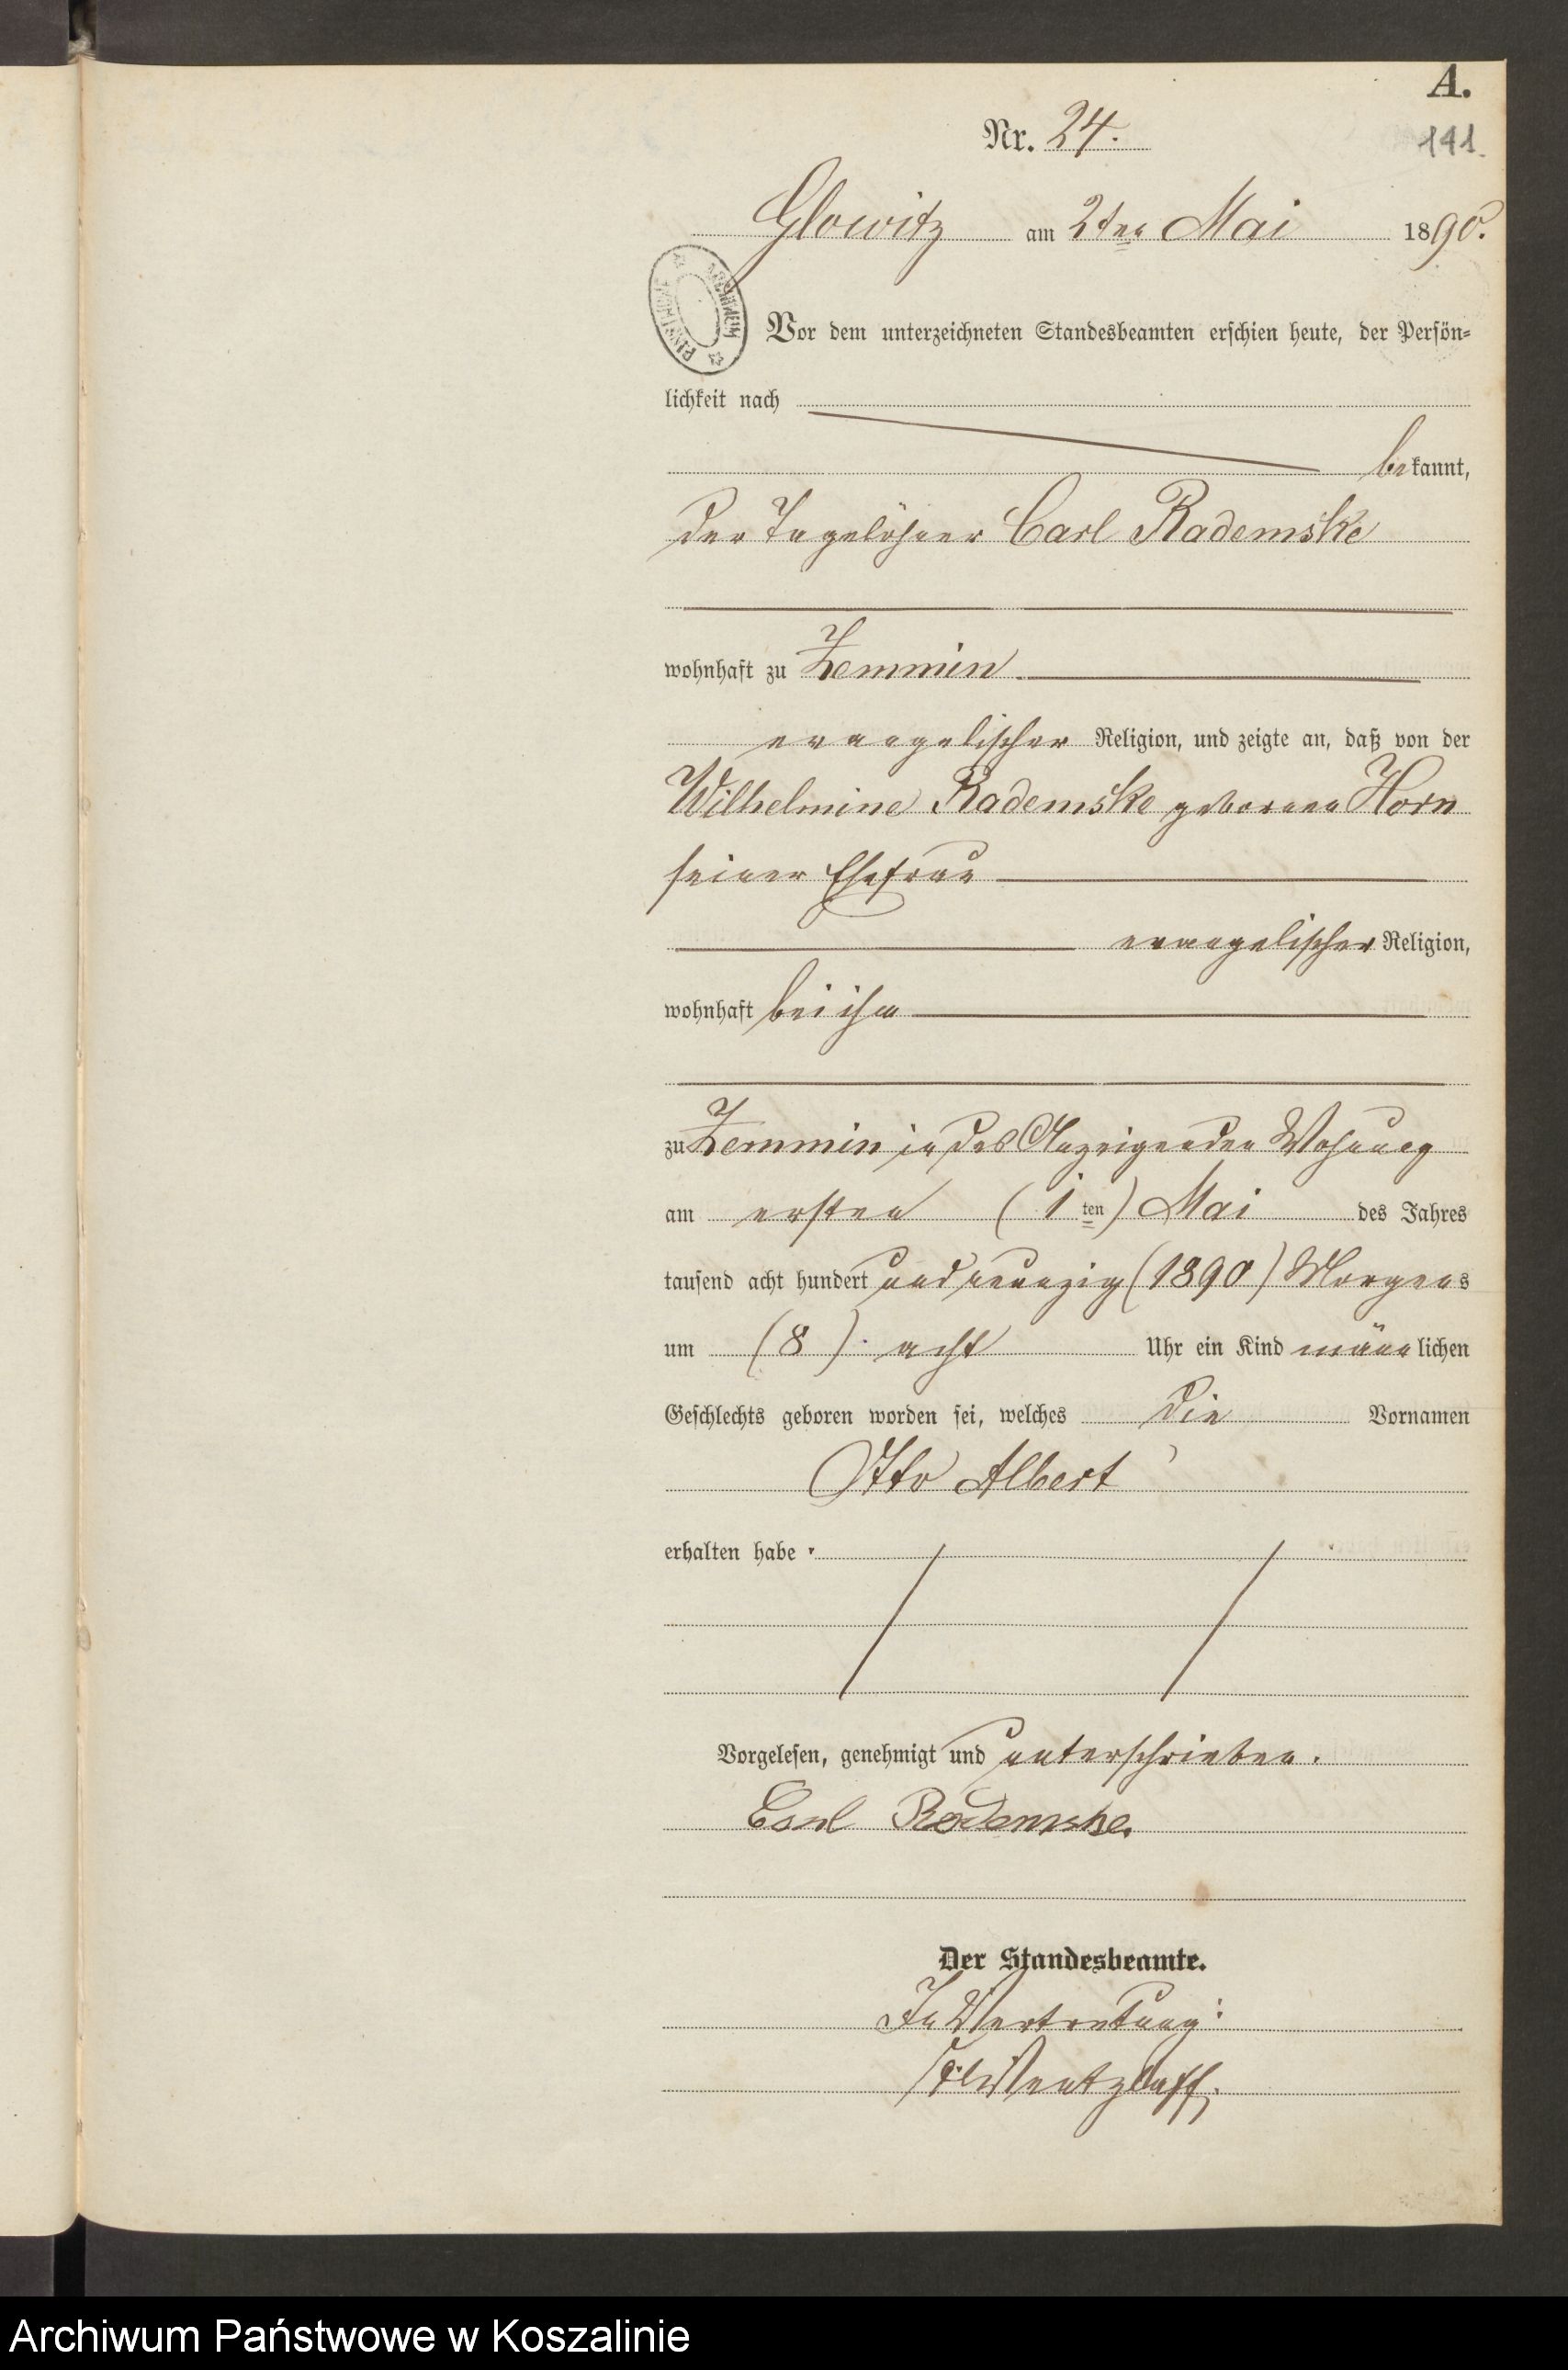 A.
Nr. 24.
141.
Glowitz am 2ten Mai 1890.
PAŃSTWOWE ARCHIWUM
Vor dem unterzeichneten Standesbeamten erschien heute, der Persön-
lichkeit nach
bekannt,
der Tagelöhner Carl Rademske
wohnhaft zu Zemmin
evangelischer Religion, und zeigte an, daß von der
Wilhelmine Rademske geborenen Horn
seiner Ehefrau
evangelischer Religion,
wohnhaft bei ihm
zu Zemmin in des Anzeigenden Wohnung
am ersten (1ten) Mai des Jahres
tausend acht hundert und neunzig (1890) Morgens
um (8) acht Uhr ein Kind männlichen
Geschlechts geboren worden sei, welches die Vornamen
Otto Albert
erhalten habe.
Vorgelesen, genehmigt und unterschrieben.
Carl Rademske.
Der Standesbeamte.
In Vertretung:
Archiwum Państwowe w Koszalinie